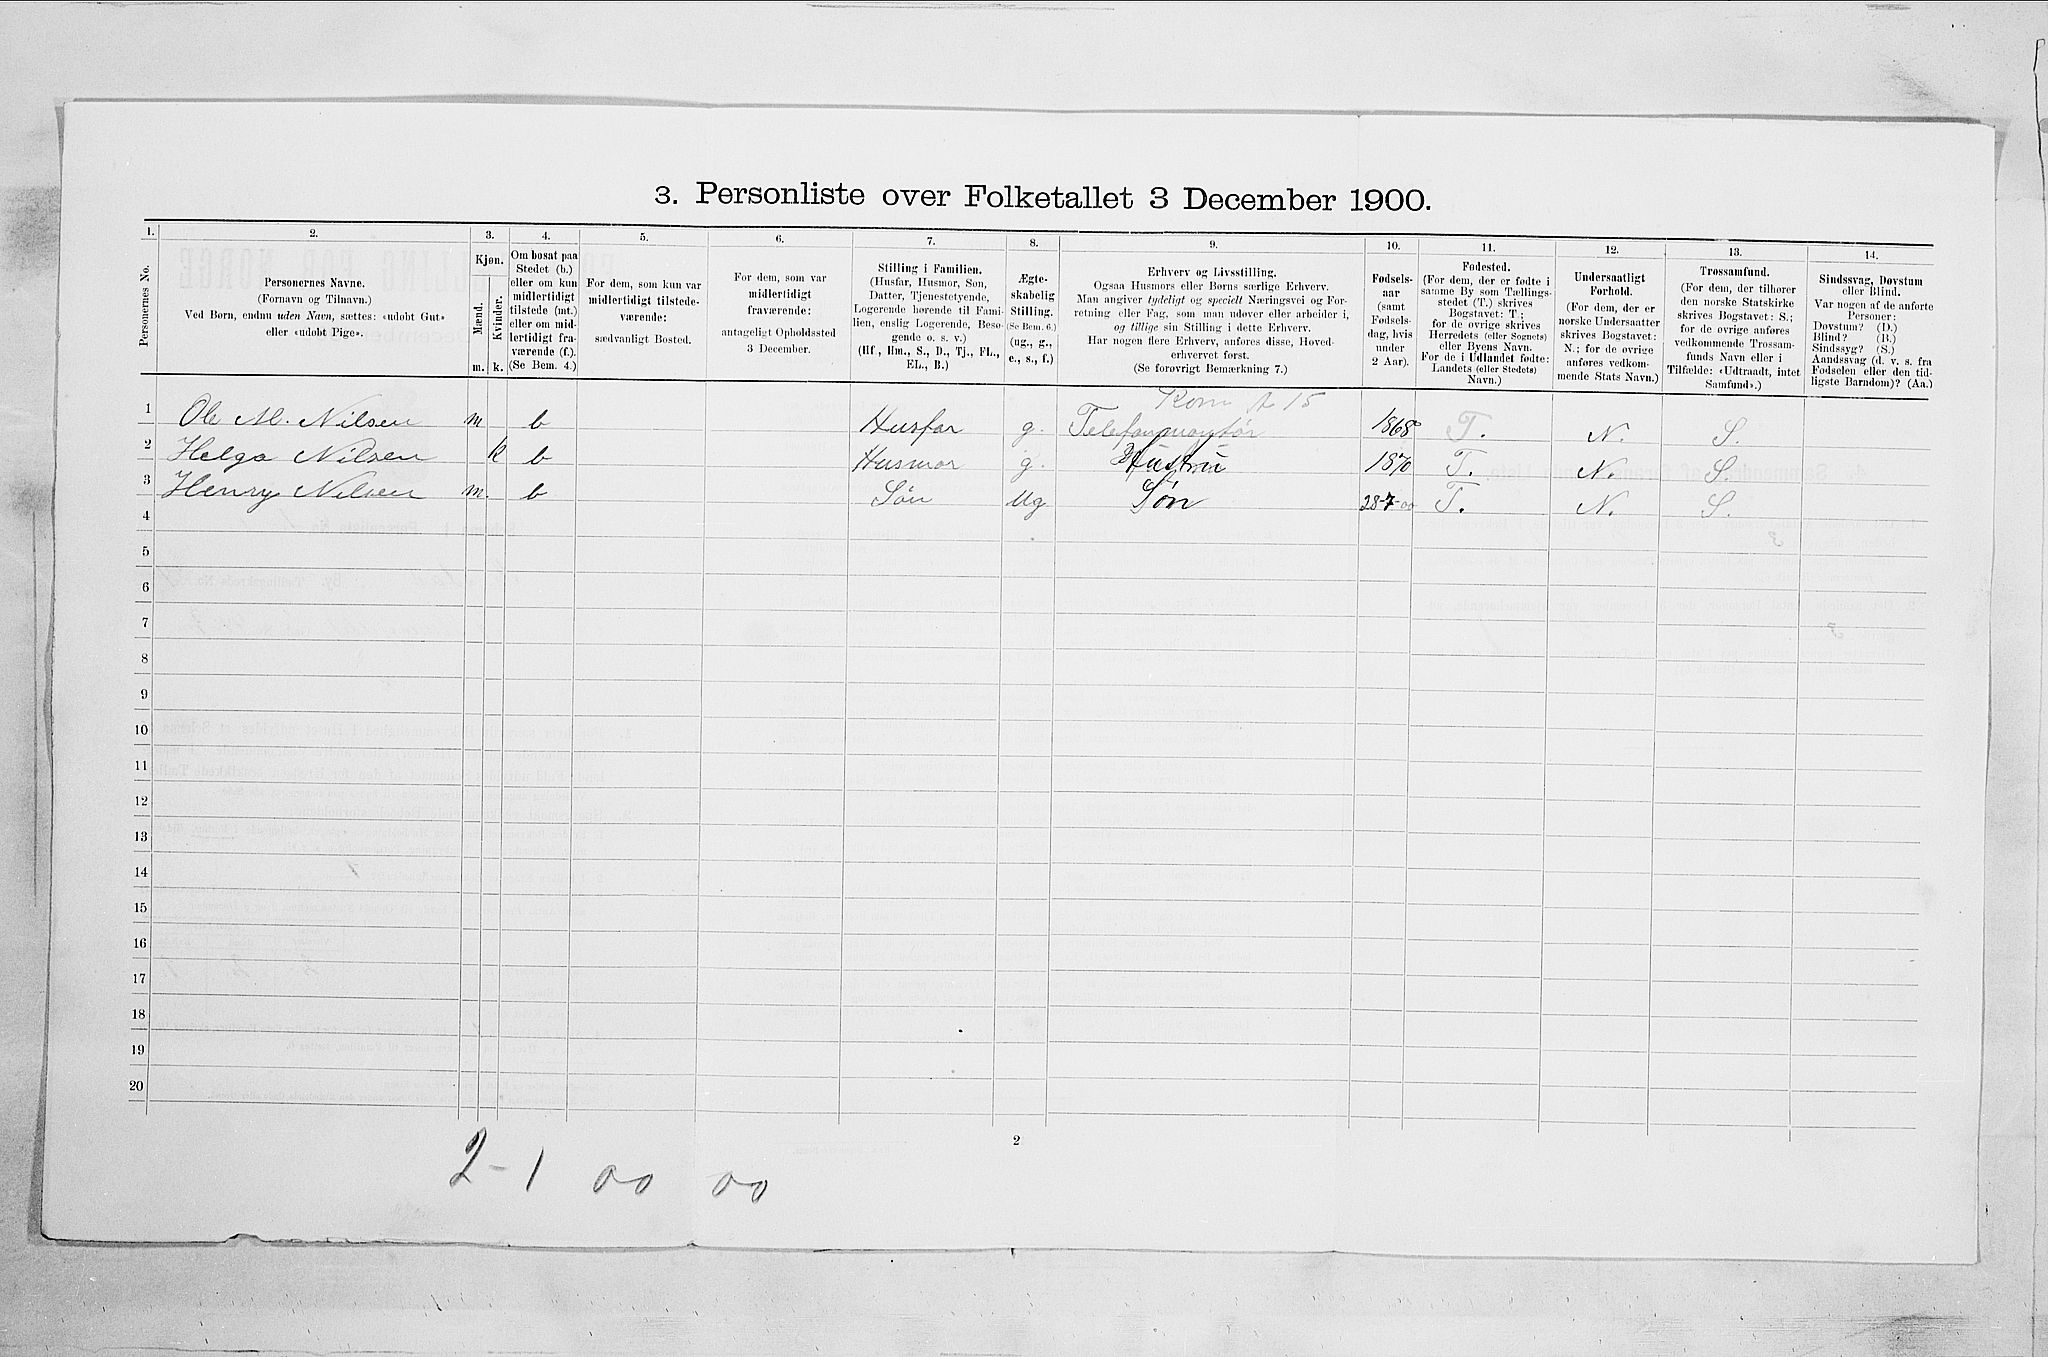 3. Personliste over Folketallet 3 December 1900.
1. 2. 3. 4. 5. 6. 7. 8. 9. 10. 11. 12. 13. 14.
Personernes No.
Personernes Navne.
(Fornavn og Tilnavn.)
Ved Børn, endnu uden Navn, sættes: «udøbt Gut»
eller «udøbt Pige».
Kjøn.
Mænd.
Kvinder.
m. k.
Om bosat paa
Stedet (b.)
eller om kun
midlertidigt
tilstede (mt.)
eller om mid-
lertidigt fra-
værende (f.).
(Se Bem. 4.)
For dem, som kun var
midlertidigt tilstede-
værende:
sædvanligt Bosted.
For dem, som var
midlertidigt
fraværende:
antageligt Opholdssted
3 December.
Stilling i Familien.
(Husfar, Husmor, Søn,
Datter, Tjenestetyende,
Logerende hørende til Fami-
lien, enslig Logerende, Besø-
gende o. s. v.)
(Hf., Hm., S., D., Tj., FL.,
EL., B.)
Ægte-
skabelig
Stilling.
(Se Bem. 6.)
(ug., g.,
e., s., f.)
Erhverv og Livsstilling.
Ogsaa Husmors eller Børns særlige Erhverv.
Man angiver tydeligt og specielt Næringsvei og For-
retning eller Fag, som man udøver eller arbeider i,
og tillige sin Stilling i dette Erhverv.
Har nogen flere Erhverv, anføres disse, Hoved-
erhvervet først.
(Se forøvrigt Bemærkning 7.)
Fødsels-
aar
(samt
Fødsels-
dag, hvis
under
2 Aar).
Fødested.
(For dem, der er fødte i
samme By som Tællings-
stedet (T.) skrives
Bogstavet: T;
for de øvrige skrives
Herredets (eller Sognets)
eller Byens Navn.
For de i Udlandet fødte:
Landets (eller Stedets)
Navn.)
Undersaatligt
Forhold.
(For dem, der er
norske Undersaatter
skrives Bogstavet:
N.; for de øvrige
anføres vedkom-
mende Stats Navn.)
Trossamfund.
(For dem, der tilhører
den norske Statskirke
skrives Bogstavet: S.;
for de øvrige anføres
vedkommende Trossam-
funds Navn eller i
Tilfælde: «Udtraadt, intet
Samfund».)
Sindssvag, Døvstum
eller Blind.
Var nogen af de anførte
Personer:
Døvstum? (D.)
Blind? (B.)
Sindssyg? (S.)
Aandssvag (d. v. s. fra
Fødselen eller den tid-
ligste Barndom)? (Aa.)
1 Ole M. Nilsen m b Husfar g. Telefonmontør 1868 T. N. S.
2 Helga Nilsen k b Husmor g. Hustru 1870 T. N. S.
3 Henry Nilsen m. b Søn Ug Søn 28-7-00 T. N. S.
4
5
6
7
8
9
10
11
12
13
14
15
16
17
18
19
20
2
2-1 00 00